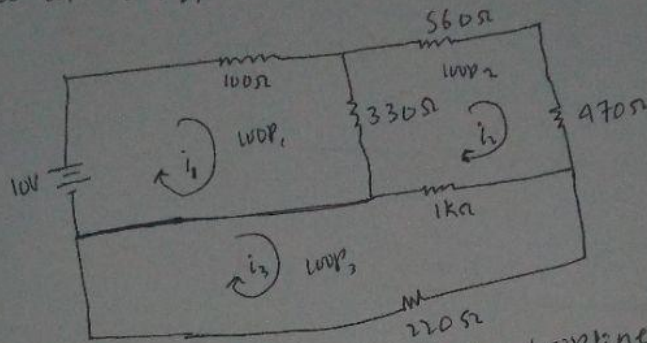 560Ω
100Ω
loop₂
330Ω
470Ω
loop₁
i₁
i₂
10V
1KΩ
i₃
loop₃
220Ω